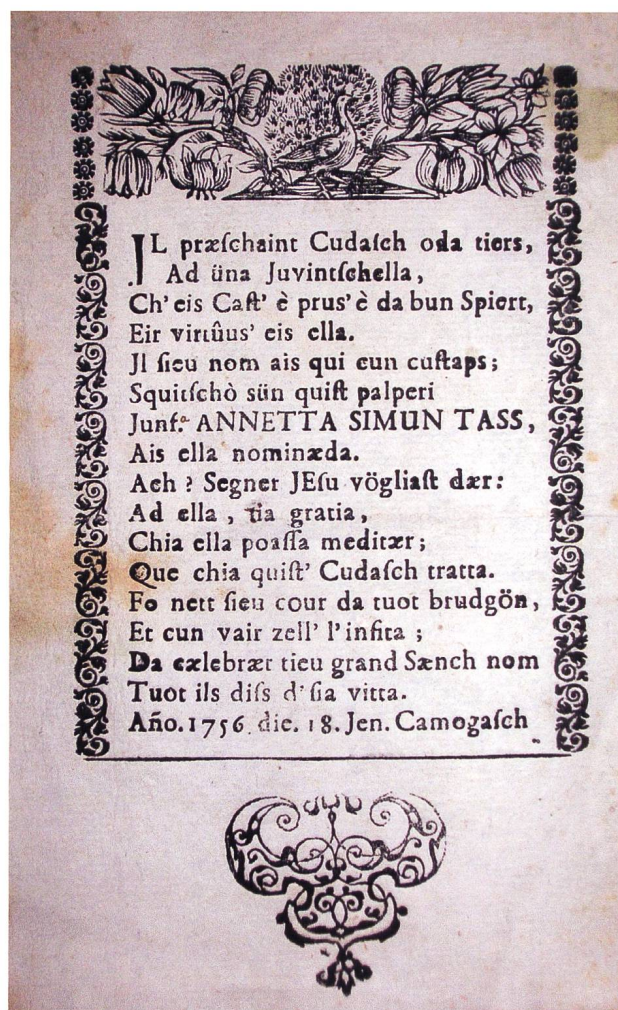 IL præſchaint Cudaſch oda tiers,
Ad üna Juvintſchella,
Ch' eis Caſt' è prus' è da bun Spiert,
Eir virtûus' eis ella.
Jl ſieu nom ais qui cun cuſtaps;
Squitſchò sün quiſt palperi
Junf.ª ANNETTA SIMUN TASS,
Ais ella nominæda.
Ach ? Segner JEſu vögliaſt dær:
Ad ella , tia gratia,
Chia ella poaſſa meditær;
Que chia quiſt' Cudaſch tratta.
Fo nett ſieu cour da tuot brudgön,
Et cun vair zell' l'infita ;
Da cælebrær tieu grand Sænch nom
Tuot ils diſs d' ſia vitta.
Año. 1756. die. 18. Jen. Camogaſch